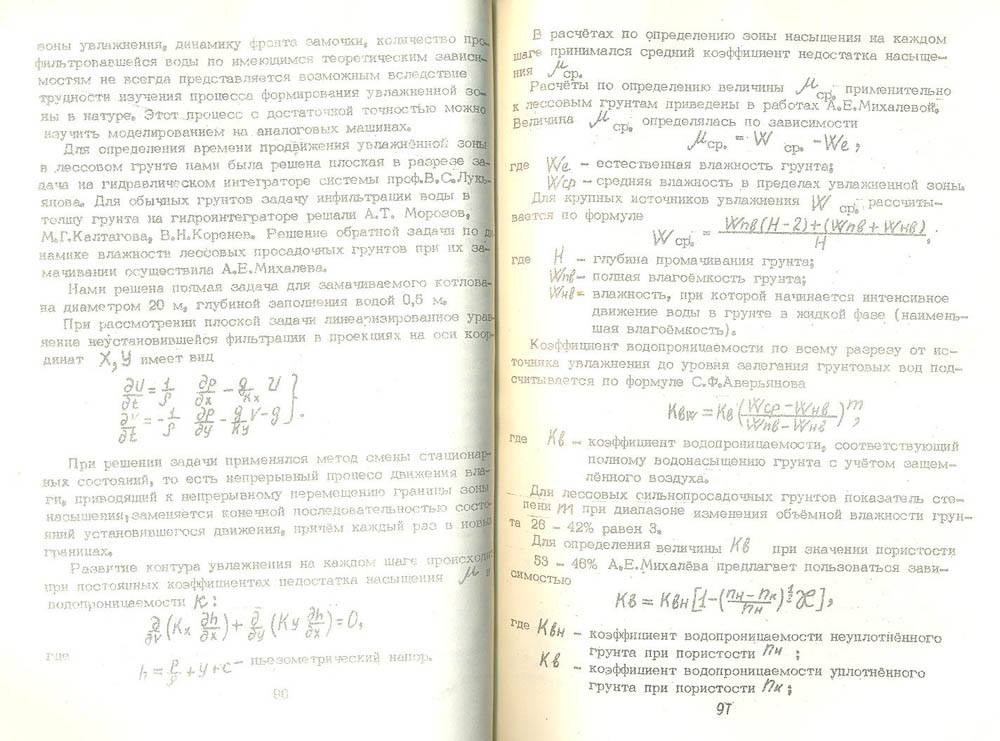 зоны увлажнения, динамику фронта замочки, количество про-
фильтровавшейся воды по имеющимся теоретическим зависи-
мостям не всегда представляется возможным вследствие
трудности изучения процесса формирования увлажненной зо-
ны в натуре. Этот процесс с достаточной точностью можно
изучить моделированием на аналоговых машинах.
Для определения времени продвижения увлажнённой зоны
в лессовом грунте нами была решена плоская в разрезе за-
дача на гидравлическом интеграторе системы проф.В.С.Лукь-
янова. Для обычных грунтов задачу инфильтрации воды в
толщу грунта на гидроинтеграторе решали А.Т. Морозов,
М.Г.Калтагова, В.Н.Коренев. Решение обратной задачи по ди
намике влажности лессовых просадочных грунтов при их за-
мачивании осуществила А.Е.Михалева.
Нами решена прямая задача для замачиваемого котлова-
на диаметром 20 м, глубиной заполнения водой 0,5 м.
При рассмотрении плоской задачи линеаризированное урав-
нение неустановившейся фильтрации в проекциях на оси коор-
динат X,У имеет вид
∂U/∂t = 1/ρ ∂p/∂x − g/Kx U
∂v/∂t = −1/ρ ∂p/∂y − g/Ky V − g }.
При решении задачи применялся метод смены стационар-
ных состояний, то есть непрерывный процесс движения вла-
ги, приводящий к непрерывному перемещению границы зоны
насыщения, заменяется конечной последовательностью состо-
яний установившегося движения, причём каждый раз в новых
границах.
Развитие контура увлажнения на каждом шаге происходит
при постоянных коэффициентах недостатка насыщения μ и
водопроницаемости К:
∂/∂v (Kx ∂h/∂x) + ∂/∂y (Ky ∂h/∂x) = 0,
где h = p/ρ + y + c – пьезометрический напор.
96
В расчётах по определению зоны насыщения на каждом
шаге принимался средний коэффициент недостатка насыще-
ния μ ср.
Расчёты по определению величины μ ср. применительно
к лессовым грунтам приведены в работах А.Е.Михалевой.
Величина μ ср. определялась по зависимости
μ ср. = W ср. – We,
где We – естественная влажность грунта;
Wср – средняя влажность в пределах увлажненной зоны.
Для крупных источников увлажнения W ср. рассчиты-
вается по формуле
W ср. = (Wпв(H – 2) + (Wпв + Wнв)) / H.
где H – глубина промачивания грунта;
Wпв – полная влагоёмкость грунта;
Wнв – влажность, при которой начинается интенсивное
движение воды в грунте в жидкой фазе (наимень-
шая влагоёмкость).
Коэффициент водопроницаемости по всему разрезу от ис-
точника увлажнения до уровня залегания грунтовых вод под-
считывается по формуле С.Ф.Аверьянова
Квw = Кв ((Wср – Wнв) / (Wпв – Wнв))^m,
где Кв – коэффициент водопроницаемости, соответствующий
полному водонасыщению грунта с учётом защем-
лённого воздуха.
Для лессовых сильнопросадочных грунтов показатель сте-
пени m при диапазоне изменения объёмной влажности грун-
та 26 – 42% равен 3.
Для определения величины Кв при значении пористости
53 – 46% А.Е.Михалёва предлагает пользоваться зави-
симостью
Кв = Квн [1 – ((nн – nк) / nн)^½ ℋ],
где Квн – коэффициент водопроницаемости неуплотнённого
грунта при пористости nн ;
Кв – коэффициент водопроницаемости уплотнённого
грунта при пористости nк ;
97